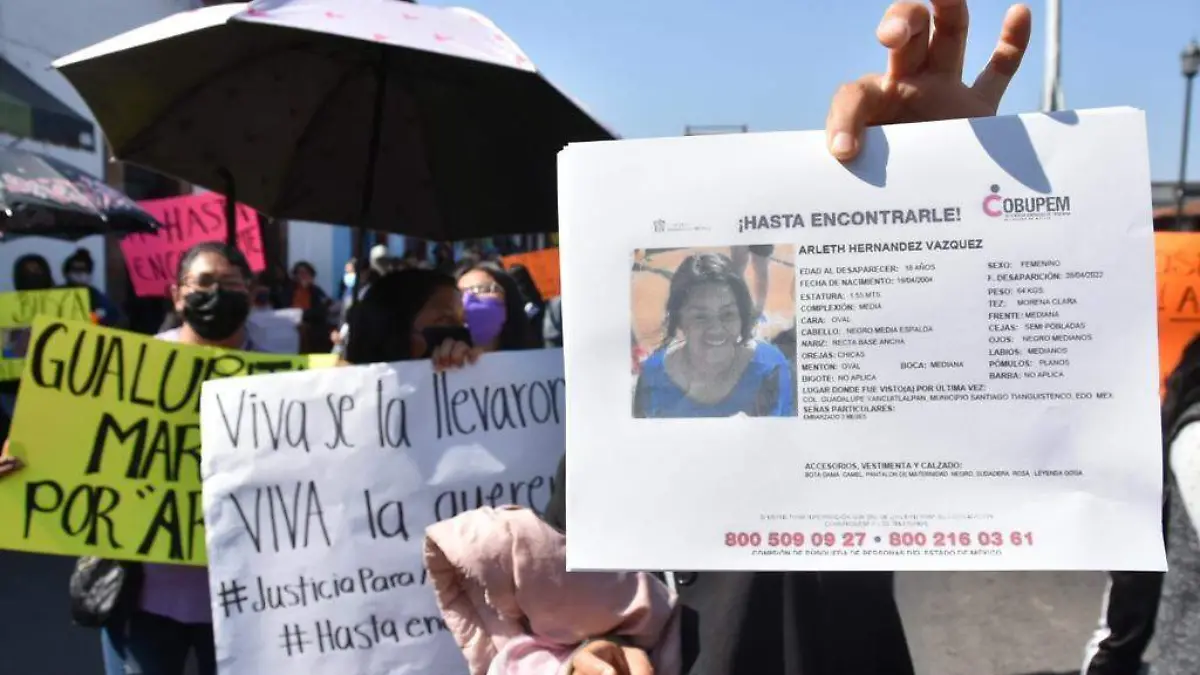 ¡HASTA ENCONTRARLE!
COBUPEM
ARLETH HERNANDEZ VAZQUEZ
EDAD AL DESAPARECER: 18 AÑOS
FECHA DE NACIMIENTO: 19/04/2004
ESTATURA: 1.55 MTS.
COMPLEXIÓN: MEDIA
CARA: OVAL
CABELLO: NEGRO MEDIA ESPALDA
NARIZ: RECTA BASE ANCHA
OREJAS: CHICAS
MENTON: OVAL
BOCA: MEDIANA
BIGOTE: NO APLICA
SEXO: FEMENINO
F. DESAPARICIÓN: /04/2022
PESO: 64 KGS.
TEZ: MORENA CLARA
FRENTE: MEDIANA
CEJAS: SEMI POBLADAS
OJOS: NEGRO MEDIANOS
LABIOS: MEDIANOS
PÓMULOS: PLANOS
BARBA: NO APLICA
LUGAR DONDE FUE VISTO(A) POR ÚLTIMA VEZ:
COL. GUADALUPE YANCUITLALPAN, MUNICIPIO SANTIAGO TIANGUISTENCO, EDO. MEX.
SEÑAS PARTICULARES:
EMBARAZO 3 MESES
ACCESORIOS, VESTIMENTA Y CALZADO:
BOTA DAMA CAMEL, PANTALON DE MATERNIDAD NEGRO, SUDADERA ROSA, LEYENDA
800 509 09 27 • 800 216 03 61
COMISIÓN DE BÚSQUEDA DE PERSONAS DEL ESTADO DE MÉXICO
HASTA
ENC
GUALUP
MAR
POR "A
Viva se la llevaron
VIVA la queren
#JusticiaPara
#Hasta en